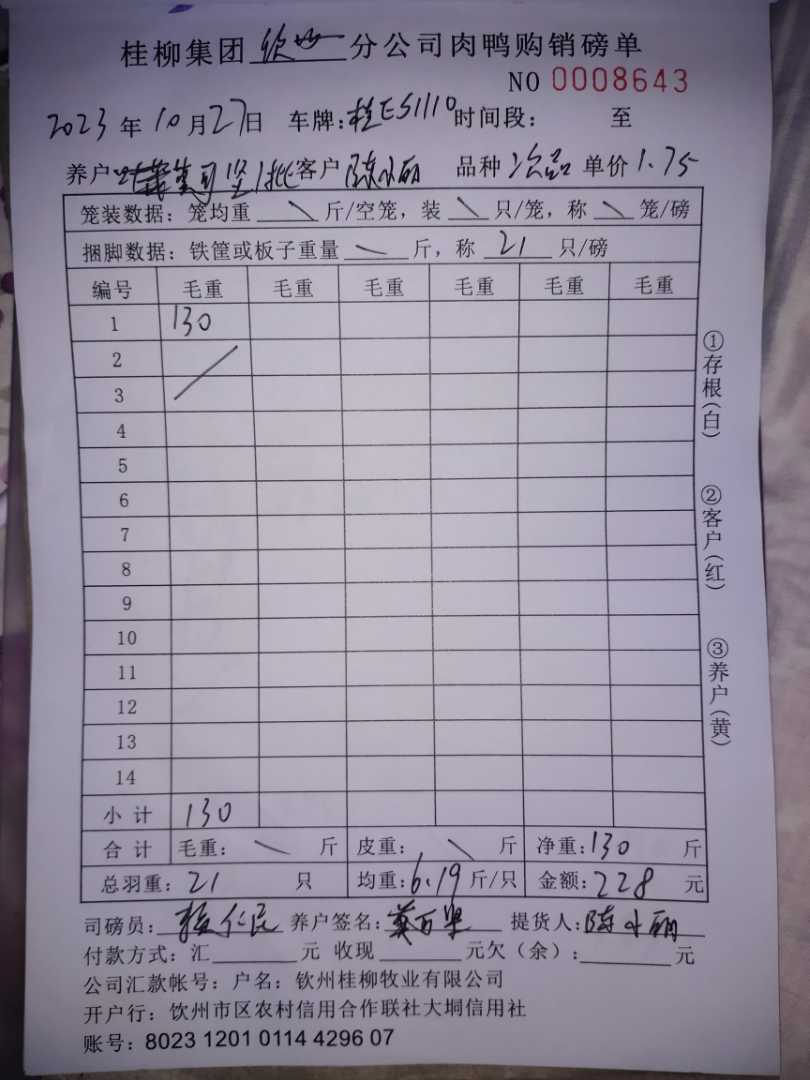 桂柳集团钦州分公司肉鸭购销磅单
NO 0008643
2023年10月27日 车牌:桂ES1110 时间段: 至
养户 客户 陈小丽 品种 次品 单价1.75
笼装数据: 笼均重 斤/空笼, 装 只/笼, 称 笼/磅
捆脚数据: 铁筐或板子重量 斤, 称 21 只/磅
编号 毛重 毛重 毛重 毛重 毛重 毛重
1 130
2
3
4
5
6
7
8
9
10
11
12
13
14
小计 130
合计 毛重: 斤 皮重: 斤 净重:130 斤
总羽重: 21 只 均重:6.19斤/只 金额:228元
司磅员: 仁民 养户签名: 莫百坚 提货人:陈小丽
付款方式: 汇 元 收现 元欠(余): 元
公司汇款帐号: 户名: 钦州桂柳牧业有限公司
开户行: 钦州市区农村信用合作联社大垌信用社
账号: 8023 1201 0114 4296 07
①存根(白)
②客户(红)
③养户(黄)